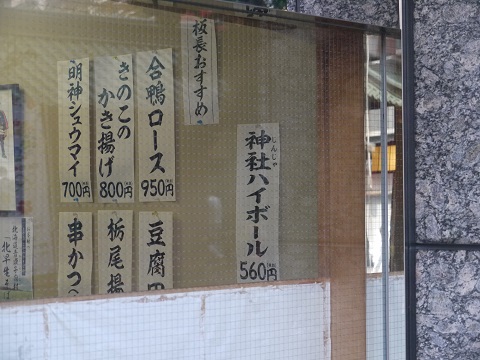 板長おすすめ
神社ハイボール
じんじゃ
560円
合鴨ロース
950円
きのこの
かき揚げ
800円
明神シュウマイ
700円
豆腐
栃尾揚
串かつ